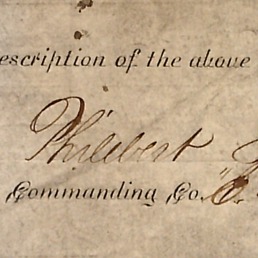 escription of the above
Philebert
Commanding Co.